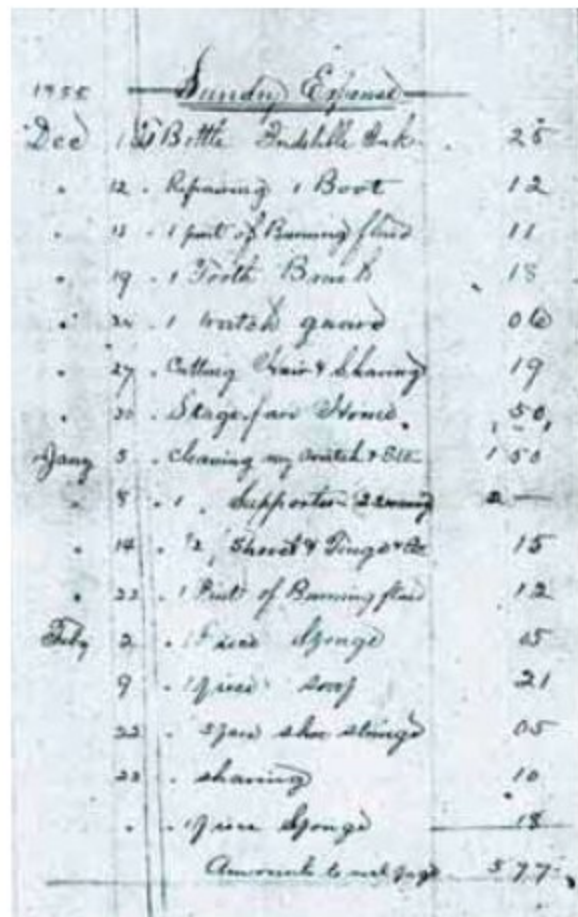 1855 Sundry Expense
Dec 1 Bottle Indelible Ink 25
" 12 " Repairing 1 Boot 12
" 13 " 1 pint of Burning fluid 11
" 19 " 1 Tooth Brush 18
" 1 watch guard 06
" 27 " Cutting Hair & Shaving 19
" Stage fair Home 50
Jany 5 " Cleaning my watch & 1 50
" 8 " 1 Supporter 2 —
" 14 " 1/2 15
" 22 " 1 Pint of Burning fluid 12
Feby 2 " 1 Piece Sponge 05
9 " 1 piece soap 21
22 " shoe strings 05
" shaving 10
" " 1 piece Sponge 18
Amounts to next page 5 77